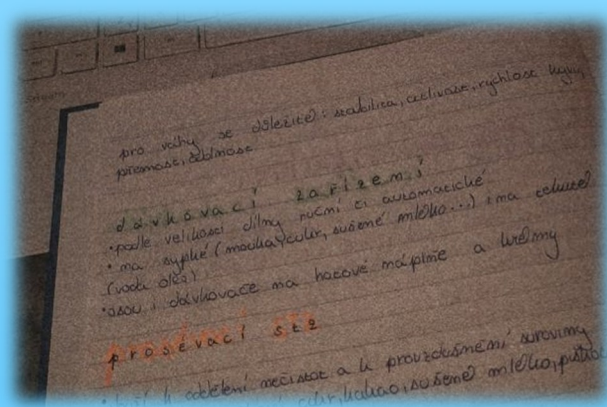 pro váhy se důležité: stabilita, citlivost, rychlost kyvu,
přesnost, čitelnost
dávkovací zařízení
• podle velikosti dílny ruční či automatické
• na sypké (mouka, cukr, sušené mléko...) i na tekuté
(voda olej)
• jsou i dávkovače na hotové náplně a krémy
prosévací stz
k oddělení nečistot a k provzdušnění suroviny
cukr, kakao, sušené mléko,